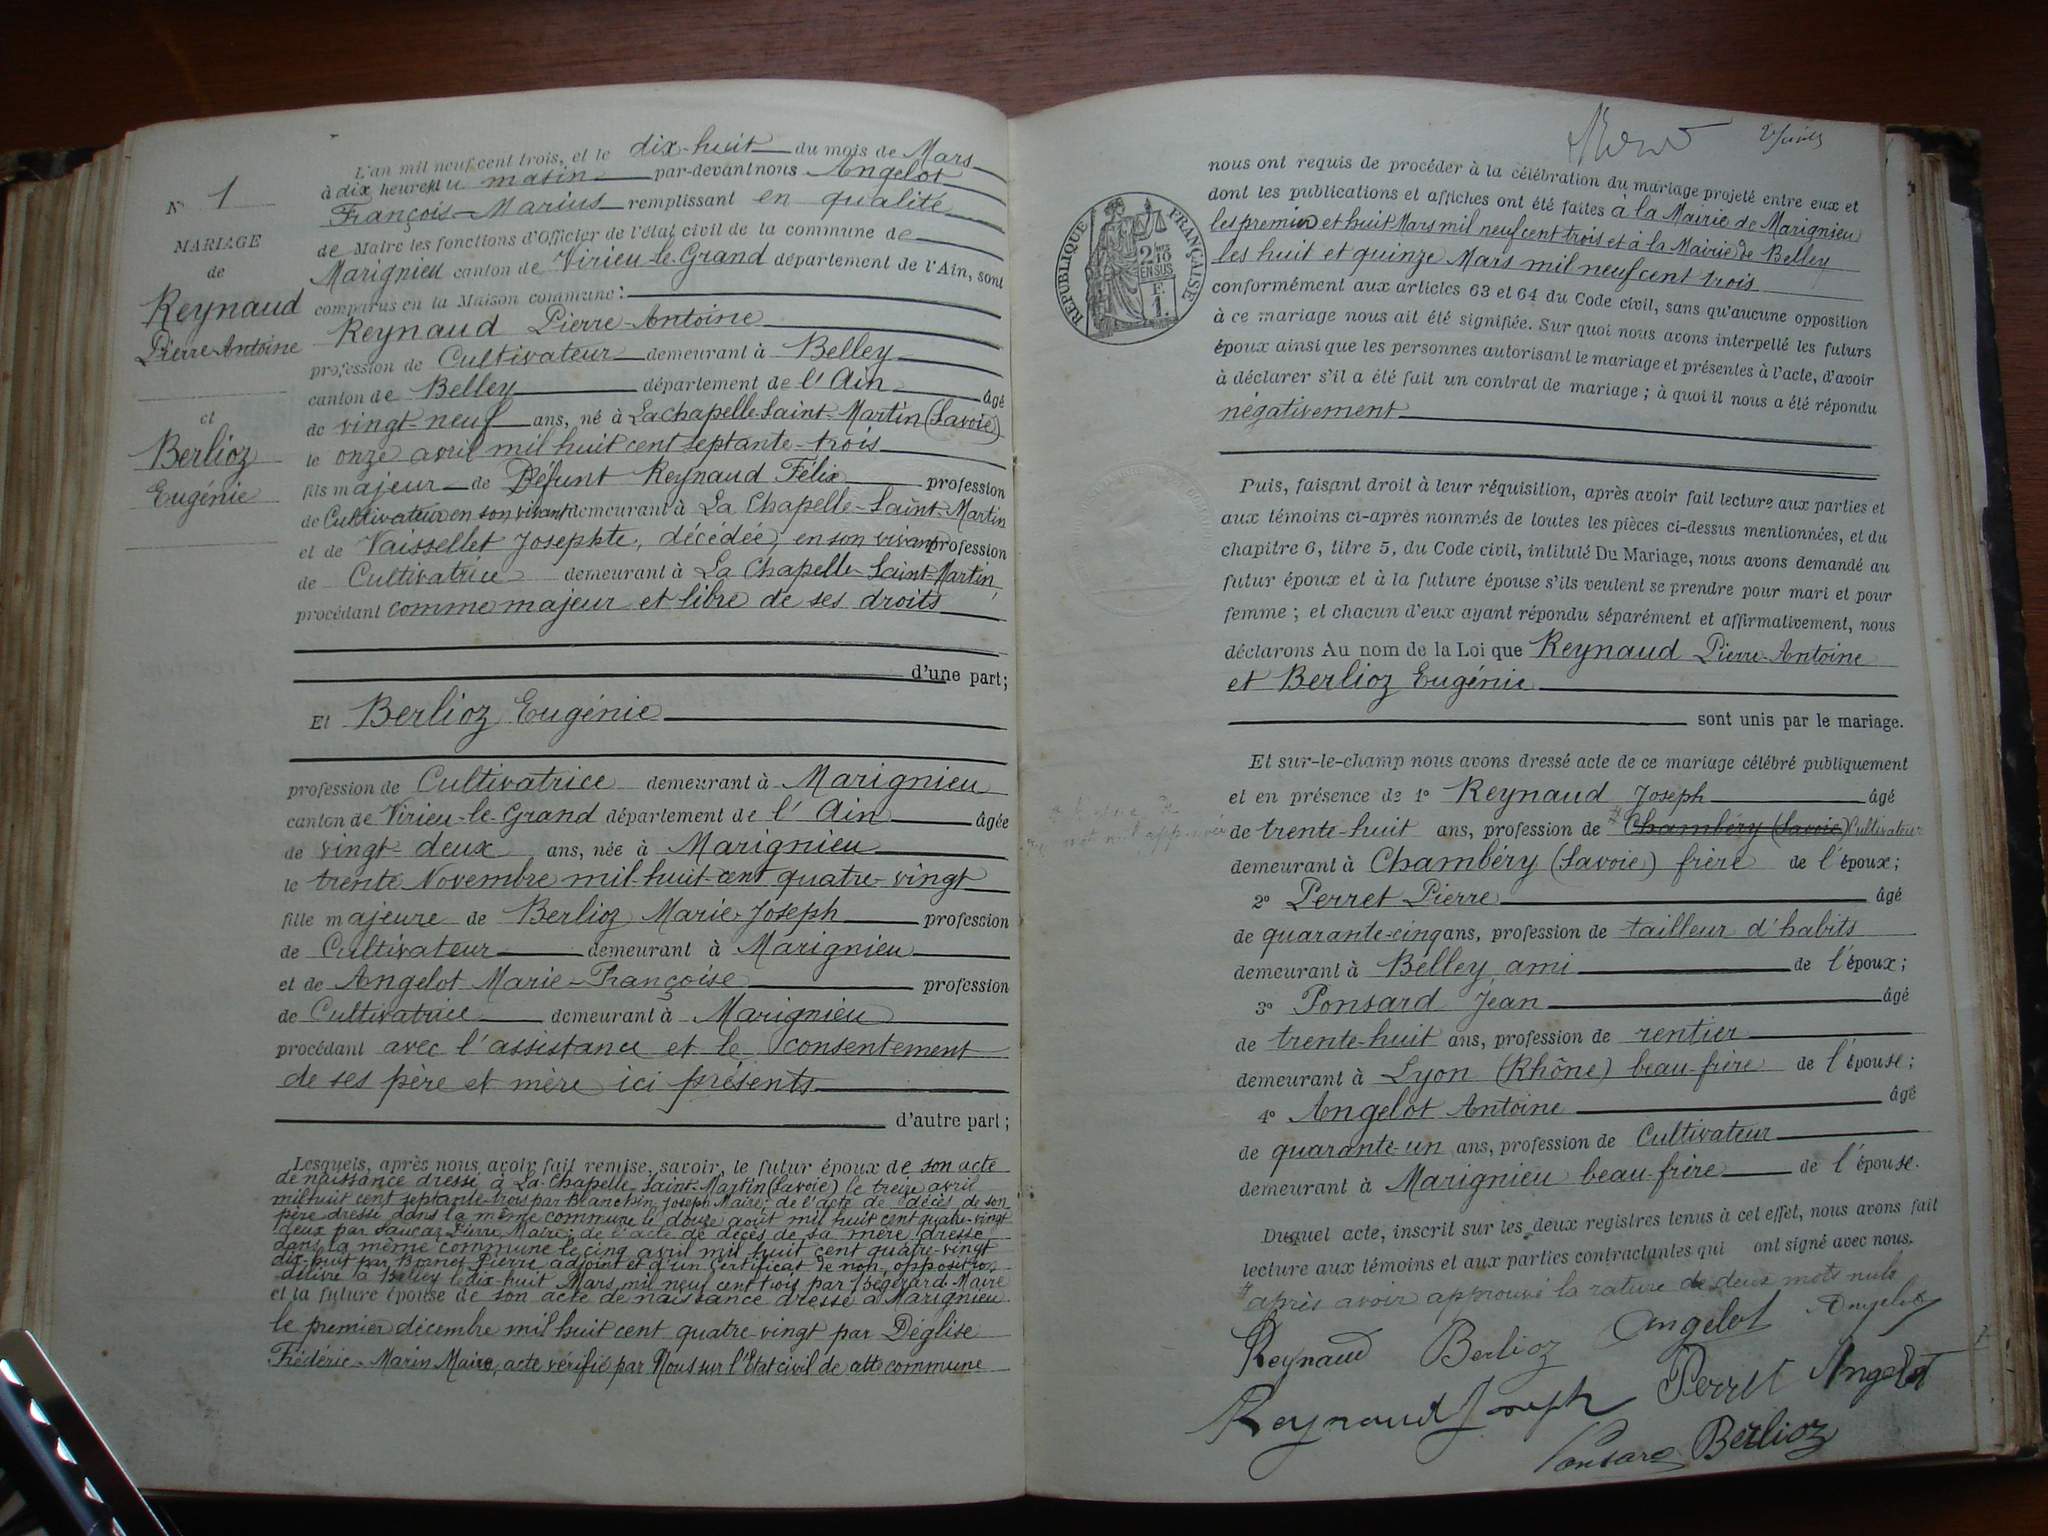 N° 1
MARIAGE
de
Reynaud
Pierre-Antoine
et
Berlioz
Eugénie
L'an mil neuf cent trois, et le dix-huit du mois de Mars
à dix heures du matin par-devant nous Angelot
François-Marius remplissant en qualité
de Maire les fonctions d'Officier de l'état civil de la commune de
Marignieu canton de Virieu-le-Grand département de l'Ain, sont
comparus en la Maison commune :
Reynaud Pierre-Antoine
profession de Cultivateur demeurant à Belley
canton de Belley département de l'Ain âgé
de vingt-neuf ans, né à La chapelle-Saint-Martin (Savoie)
le onze avril mil huit cent septante-trois
fils majeur de Défunt Reynaud Félix profession
de Cultivateur en son vivant demeurant à La Chapelle-Saint-Martin
et de Vaissellet Josephte, décédée, en son vivant profession
de Cultivatrice demeurant à La Chapelle-Saint-Martin,
procédant comme majeur et libre de ses droits
d'une part ;
Et Berlioz Eugénie
profession de Cultivatrice demeurant à Marignieu
canton de Virieu-le-Grand département de l'Ain âgée
de vingt-deux ans, née à Marignieu
le trente Novembre mil-huit-cent quatre-vingt
fille majeure de Berlioz Marie-Joseph profession
de Cultivateur demeurant à Marignieu
et de Angelot Marie-Françoise profession
de Cultivatrice demeurant à Marignieu
procédant avec l'assistance et le consentement
de ses père et mère ici présents
d'autre part ;
Lesquels, après nous avoir fait remise, savoir, le futur époux de son acte
de naissance dressé à La Chapelle-Saint-Martin (Savoie) le treize avril
mil huit cent septante-trois par Blanchin Joseph Maire, de l'acte de décès de son
père dressé dans la même commune le douze août mil huit cent quatre-vingt
deux par Saucaz Pierre, Maire, de l'acte de décès de sa mère dressé
dans la même commune le cinq avril mil huit cent quatre-vingt
dix-huit par Pierre adjoint et d'un Certificat de non opposition
délivré à Belley le dix-huit Mars mil neuf cent trois par Maire
et la future épouse de son acte de naissance dressé à Marignieu
le premier décembre mil huit cent quatre-vingt par Déglise
Frédéric-Marin Maire, acte vérifié par Nous sur l'Etat civil de cette commune
RÉPUBLIQUE FRANÇAISE
2 10
EN SUS
F.
1.
nous ont requis de procéder à la célébration du mariage projeté entre eux et
dont les publications et affiches ont été faites à la Mairie de Marignieu
les premier et huit Mars mil neuf cent trois et à la Mairie de Belley
les huit et quinze Mars mil neuf cent trois
conformément aux articles 63 et 64 du Code civil, sans qu'aucune opposition
à ce mariage nous ait été signifiée. Sur quoi nous avons interpellé les futurs
époux ainsi que les personnes autorisant le mariage et présentes à l'acte, d'avoir
à déclarer s'il a été fait un contrat de mariage ; à quoi il nous a été répondu
négativement
Puis, faisant droit à leur réquisition, après avoir fait lecture aux parties et
aux témoins ci-après nommés de toutes les pièces ci-dessus mentionnées, et du
chapitre 6, titre 5, du Code civil, intitulé Du Mariage, nous avons demandé au
futur époux et à la future épouse s'ils veulent se prendre pour mari et pour
femme ; et chacun d'eux ayant répondu séparément et affirmativement, nous
déclarons Au nom de la Loi que Reynaud Pierre-Antoine
et Berlioz Eugénie
sont unis par le mariage.
Et sur-le-champ nous avons dressé acte de ce mariage célébré publiquement
et en présence de 1° Reynaud Joseph âgé
de trente-huit ans, profession de # Chambéry (Savoie) Cultivateur
demeurant à Chambéry (Savoie) frère de l'époux ;
2° Perret Pierre âgé
de quarante-cinq ans, profession de tailleur d'habits
demeurant à Belley ami de l'époux ;
3° Ponsard Jean âgé
de trente-huit ans, profession de rentier
demeurant à Lyon (Rhône) beau-frère de l'épouse ;
4° Angelot Antoine âgé
de quarante-un ans, profession de Cultivateur
demeurant à Marignieu beau-frère de l'épouse.
Duquel acte, inscrit sur les deux registres tenus à cet effet, nous avons fait
lecture aux témoins et aux parties contractantes qui ont signé avec nous.
# après avoir approuvé la rature de deux mots nuls
Reynaud Berlioz Angelot Angelot
Reynaud Joseph Perret Angelot
Ponsard Berlioz